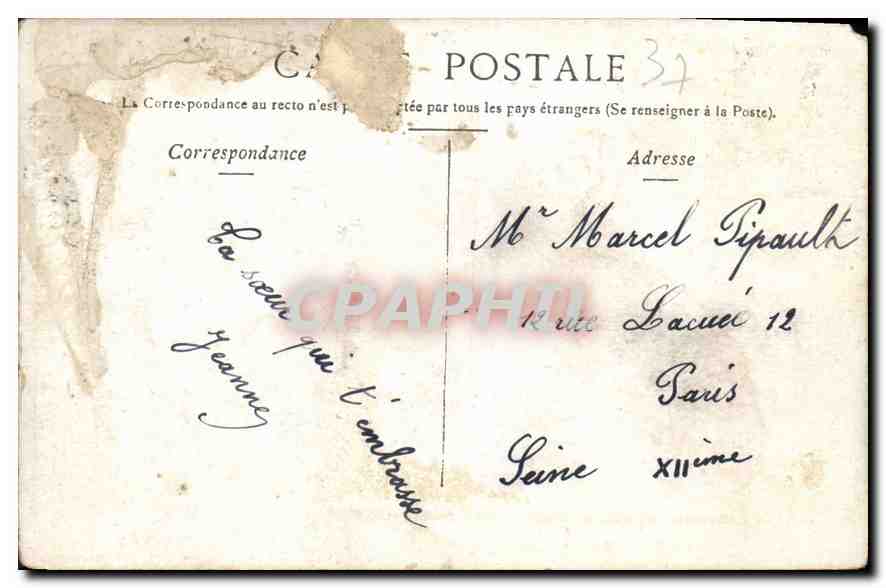 CARTE POSTALE
37
La Correspondance au recto n'est pas acceptée par tous les pays étrangers (Se renseigner à la Poste).
Correspondance
Adresse
Ta sœur qui t'embrasse
Jeanne
Mr Marcel Pipault
12 rue Lacuée 12
Paris
Seine XIIième
CPAPHIL